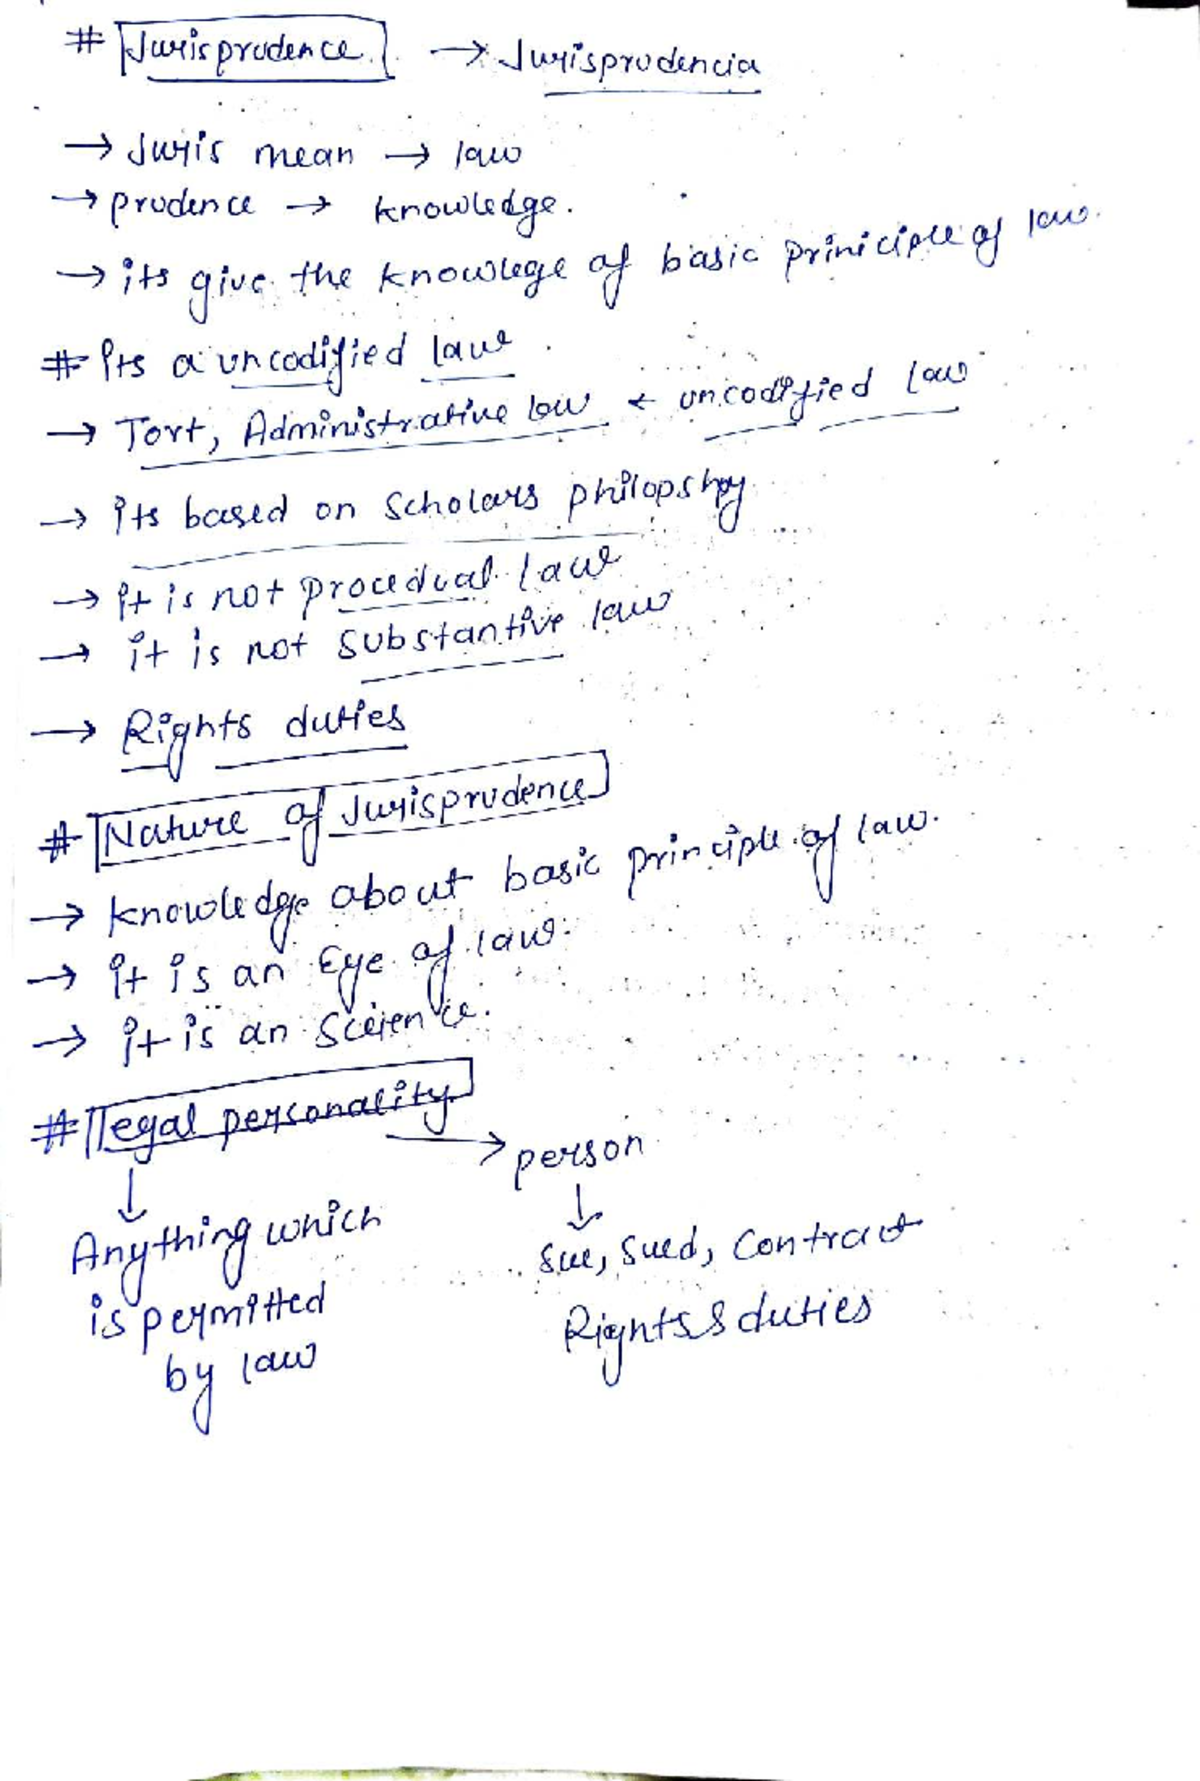 # Jurisprudence. → Jurisprudencia
→ Juris mean → law
→ prudence → knowledge.
→ its give the knowlege of basic priniciple of law.
# Its a uncodified law
→ Tort, Administrative low ← uncodified law
→ its based on Scholars philopshy
→ it is not procedual law
→ it is not substantive law
→ Rights duties
# Nature of Jurisprudence
→ knowledge about basic principle of law.
→ it is an Eye of law.
→ it is an Sceience.
# legal personality → person
↓ ↓
Anything which
is permitted
by law
Sue, Sued, Contract
Rights & duties